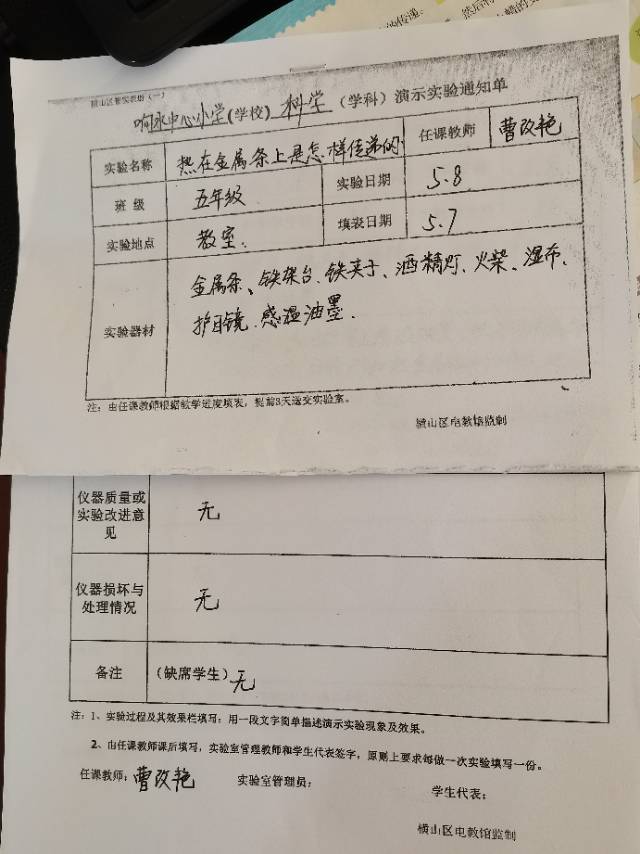 响水中心小学(学校) 科学 (学科) 演示实验通知单
实验名称 热在金属条上是怎样传递的 任课教师 曹改艳
班 级 五年级 实验日期 5.8
实验地点 教室. 填表日期 5.7
实验器材 金属条、铁架台、铁夹子、酒精灯、火柴、湿布、
护目镜、感温油墨.
注:由任课教师根据教学进度填表,提前3天送交实验室。
横山区电教馆监制
仪器质量或
实验改进意
见
无
仪器损坏与
处理情况
无
备注 (缺席学生) 无
注:1、实验过程及其效果栏填写:用一段文字简单描述演示实验现象及效果。
2、由任课教师课后填写,实验室管理教师和学生代表签字,原则上要求每做一次实验填写一份。
任课教师:曹改艳 实验室管理员: 学生代表:
横山区电教馆监制